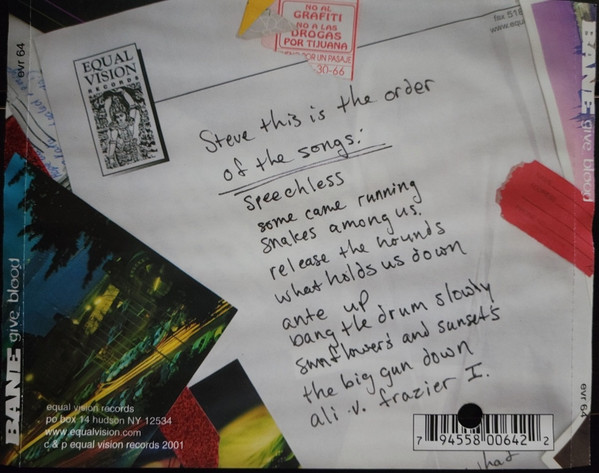 NO AL
GRAFITI
NO A LAS
DROGAS
POR TIJUANA
POR UN PASAJE
30-66
fax 518
www.equ
EQUAL
VISION
RECORDS
Steve this is the order
of the songs:
speechless
some came running
snakes among us.
release the hounds
what holds us down
ante up
bang the drum slowly
sunflowers and sunsets
the big gun down
ali v. frazier I.
equal vision records
po box 14 hudson NY 12534
www.equalvision.com
c & p equal vision records 2001
7 94558 00642 2
that
evr 64
BANE give blood
BANE give blood
evr 64